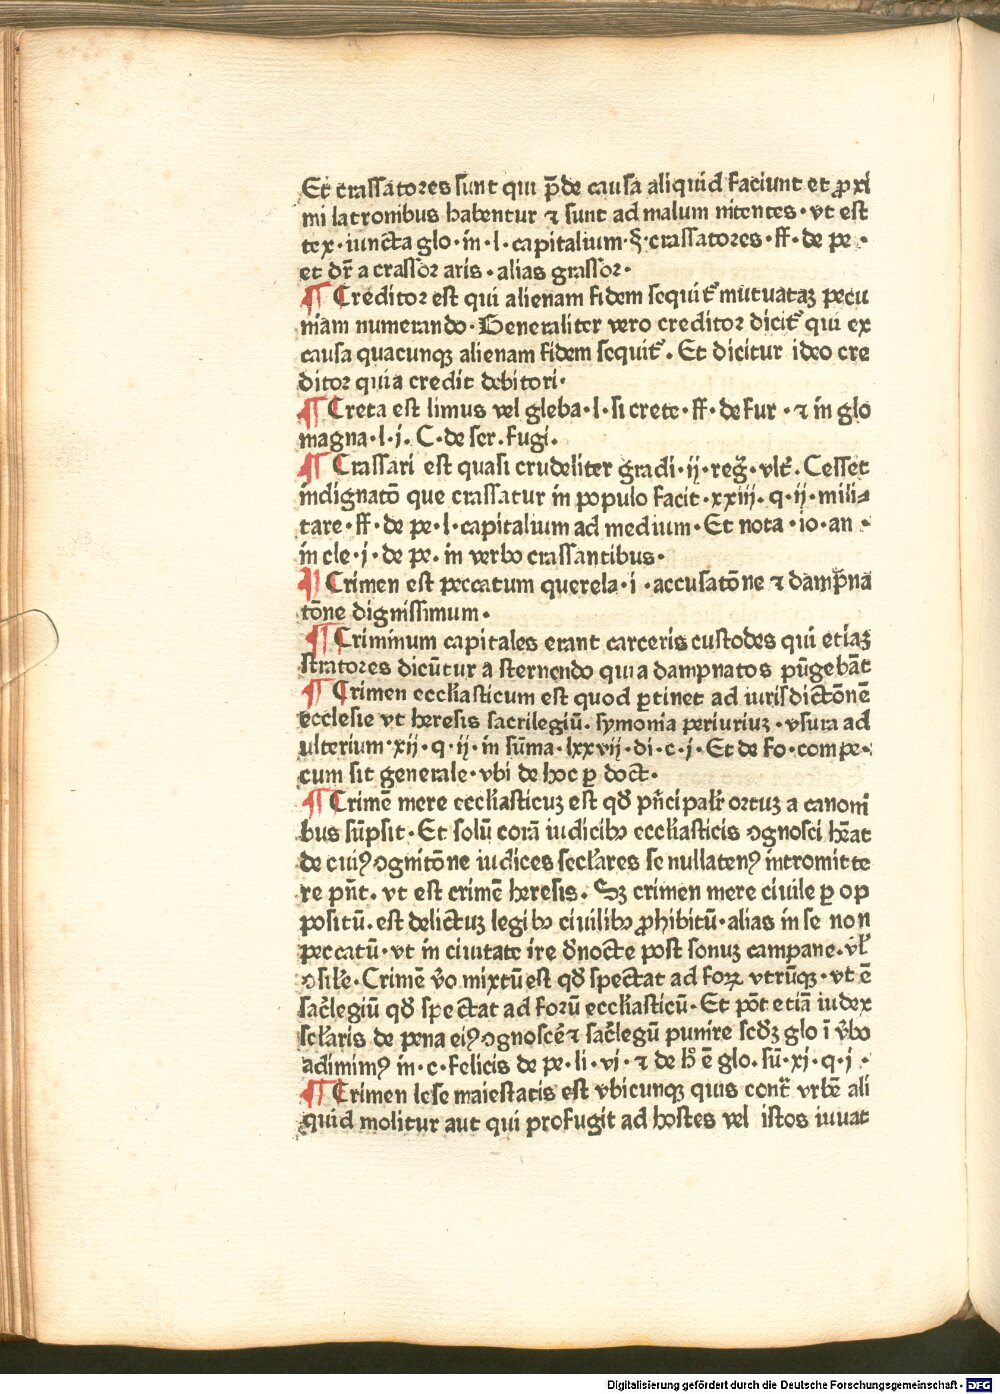 Et crassatores sunt qui p̄de causa aliquid faciunt et ꝓxi
mi latronibus habentur ⁊ sunt ad malum nitentes · vt est
tex · iuncta glo · in · l · capitalium · § · crassatores · ff · de pe ·
et dr̄ a crassor aris · alias grassor ·
¶ Creditor est qui alienam fidem sequit᷑ mutuataꝫ pecu
niam numerando · Generaliter vero creditor dicit᷑ qui ex
causa quacunqꝫ alienam fidem sequit᷑ . Et dicitur ideo cre
ditor quia credit debitori ·
¶ Creta est limus vel gleba · l · si crete · ff · de fur · ⁊ in glo
magna · l · i . C · de ser . fugi .
¶ Crassari est quasi crudeliter gradi · ij · reg̃ · vlt᷑ . Cesset
indignatō que crassatur in populo facit · xxiij . q · ij · mili⸗
tare · ff · de pe · l · capitalium ad medium · Et nota · io · an ·
in cle · i · de pe . in verbo crassantibus ·
¶ Crimen est peccatum querela · i · accusatōne ⁊ damp̄na
tōne dignissimum ·
¶ Criminum capitales erant carceris custodes qui etiaꝫ
stratores dicūtur a sternendo quia dampnatos pūgebāt
¶ Crimen eccłiasticum est quod ꝑtinet ad iurisdictōnē
ecclesie vt heresis sacrilegiū . symonia periuriuꝫ · vsura ad
ulterium · xij · q · ij · in sūma · lxxvij · di · c · i · Et de fo · compe ·
cum sit generale · vbi de hoc ꝑ doct ·
¶ Crimē mere eccłiasticuꝫ est qd̄ pn̄cipalr̄ ortuꝫ a canoni
bus sūpsit · Et solū corā iudicibꝫ eccłiasticis ꝯgnosci hēat
de cuiꝰ ꝯgnitōne iudices secłares se nullatenꝰ intromitte
re pn̄t . vt est crimē heresis . Sꝫ crimen mere ciuile ꝑ op
positū . est delictuꝫ legibꝫ ciuilibꝫ ꝓhibitū · alias in se non
peccatū · vt in ciuitate ire d̄nocte post sonuꝫ campane . vł
ꝯsiłe · Crimē v̄o mixtū est qd̄ spectat ad foꝝ vtrūqꝫ · vt ē
sac̄legiū qd̄ spectat ad forū eccłiasticū · Et pōt etiā iudex
secłaris de pena eiꝰ ꝯgnoscē ⁊ sac̄legū punire scd̄ꝫ glo ī v̄bo
adimimꝰ in · c · felicis de pe · li · vi · ⁊ de h̄ ē glo . sū · xi · q · i ·
¶ Crimen lese maiestatis est vbicunqꝫ quis cont᷑ vrbē ali
quid molitur aut qui profugit ad hostes vel istos iuuat
Digitalisierung gefördert durch die Deutsche Forschungsgemeinschaft - DFG